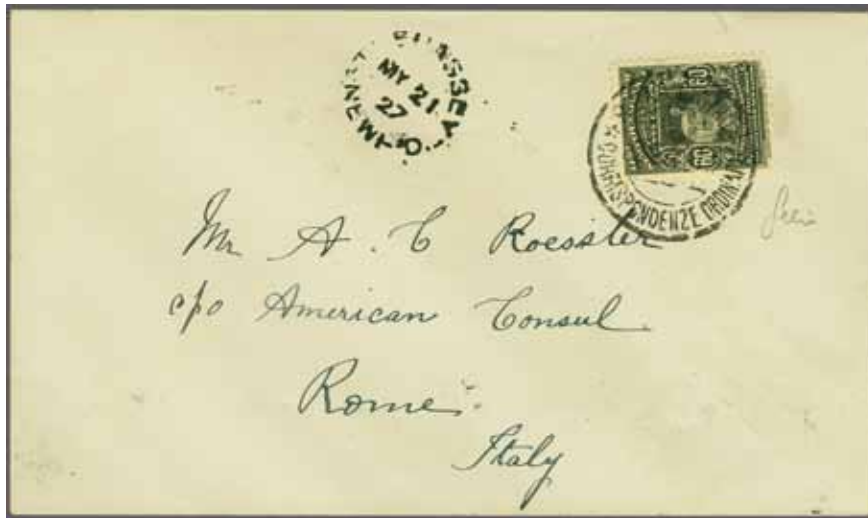 MY 21
27
60 60
CORRISPONDENZE ORDINA
Mr A. C Roessler
c/o American Consul.
Rome.
Italy